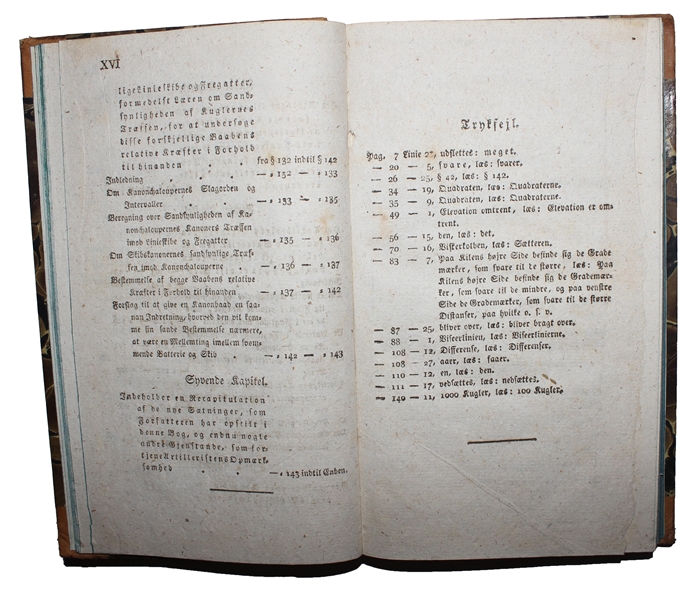 XVI
lige Linieskibe og Fregatter,
formedelst Læren om Sand-
synligheden af Kuglernes
Træffen, for at undersøge
disse forskjellige Vaabens
relative Kræfter i Forhold
til hinanden fra § 132 indtil § 142
Indledning — = 132 — = 133
Om Kanonchaloupernes Slagorden og
Intervaller — = 133 — = 135
Beregning over Sandsynligheden af Ka-
nonchaloupernes Kanoners Træffen
imod Linieskibe og Fregatter — = 135 — = 136
Om Skibskanonernes sandsynlige Træf-
fen imod Kanonchalouperne — = 136 — = 137
Bestemmelse af begge Vaabens relative
Kræfter i Forhold til hinanden — = 137 — = 142
Forslag til at give en Kanonbaad en saa-
nan Indretning, hvorved den vil kom-
me sin sande Bestemmelse nærmere,
at være en Mellemting imellem svøm-
mende Batterie og Skib — = 142 — = 143
Syvende Kapitel.
Indeholder en Recapitulation
af de nye Sætninger, som
Forfatteren har opstilt i
denne Bog, og endnu nogle
andre Gjenstande, som for-
tjene Artilleristens Opmærk-
somhed — = 143 indtil Enden.
Trykfejl.
Pag. 7 Linie 27, udslettes: meget.
— 20 — 5, svare, læs: svarer.
— 26 — 25, § 42, læs: § 142.
— 34 — 19, Quadraten, læs: Quadraterne.
— 35 — 9, Quadraten, læs: Quadraterne.
— 49 — 1, Elevation omtrent, læs: Elevation er om-
trent.
— 56 — 15, den, læs: det.
— 70 — 16, Visterkolden, læs: Sætteren.
— 83 — 7, Paa Kilens højre Side befinde sig de Grade
mærker, som svare til de større, læs: Paa
Kilens højre Side befinde sig de Grademær-
ker, som svare til de mindre, og paa venstre
Side de Grademærker, som svare til de større
Distanser, paa hvilke o. s. v.
— 87 — 25, bliver over, læs: bliver bragt over.
— 88 — 1, Viseerlinien, læs: Viseerlinierne.
— 108 — 12, Differense, læs: Differenser.
— 108 — 27, aaer, læs: faaer.
— 110 — 12, en, læs: den.
— 111 — 17, vedsættes, læs: nedsættes.
— 140 — 11, 1000 Kugler, læs: 100 Kugler.